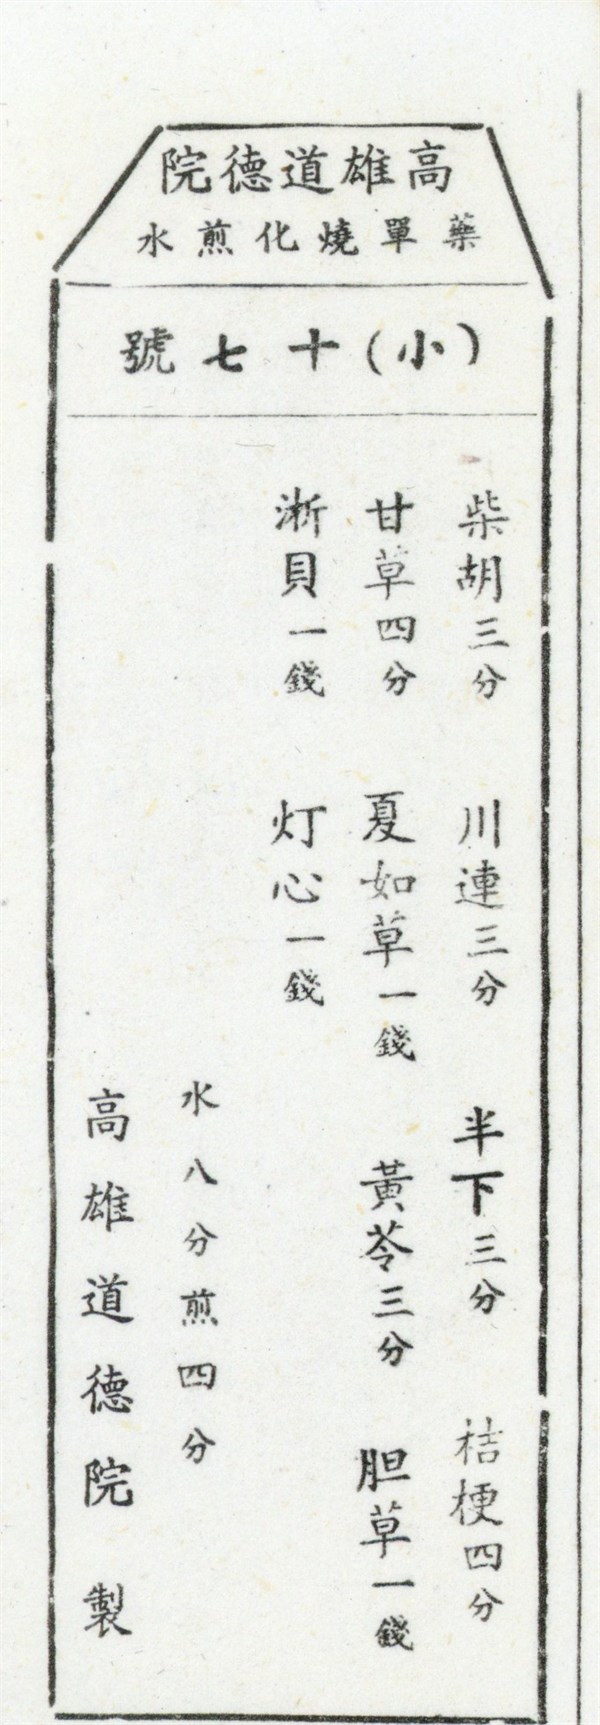 高雄道德院
藥單燒化煎水
(小)十七號
柴胡三分 川連三分 半下三分 桔梗四分
甘草四分 夏如草一錢 黃苓三分 胆草一錢
淅貝一錢 灯心一錢
水八分煎四分
高雄道德院 製